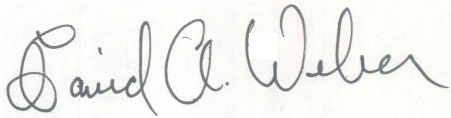 David A. Weber